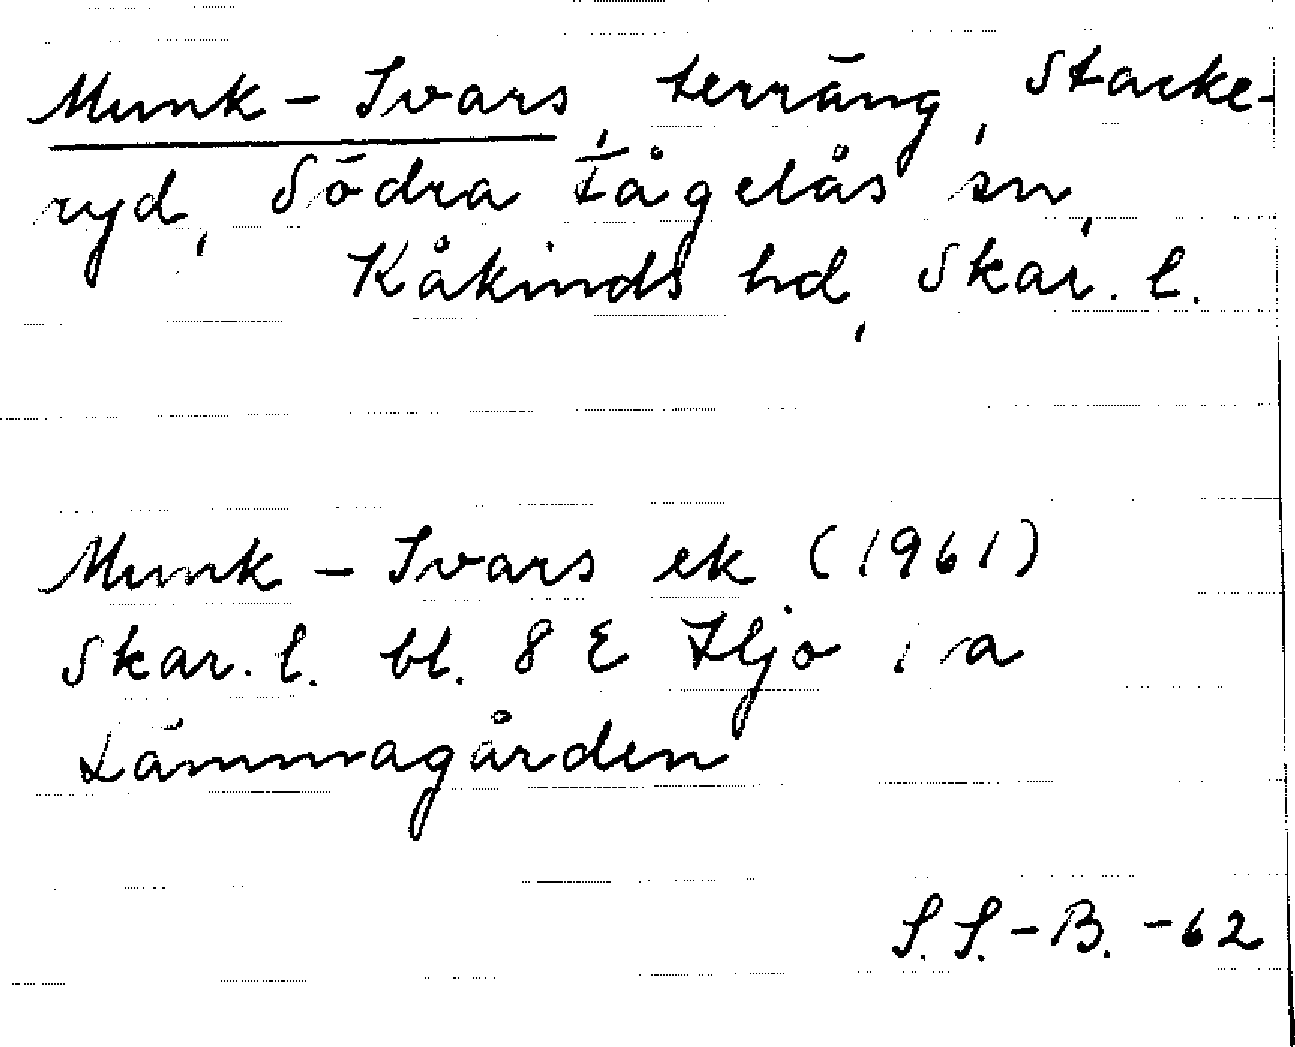 Munk-Ivars, terräng, Stacke-
ryd, Södra Fågelås sn,
Kåkinds hd, Skar. l.
Munk-Ivars ek (1961)
Skar. l. bl. 8 E Hjo i a
Lämmagården
S. S.-B. -62